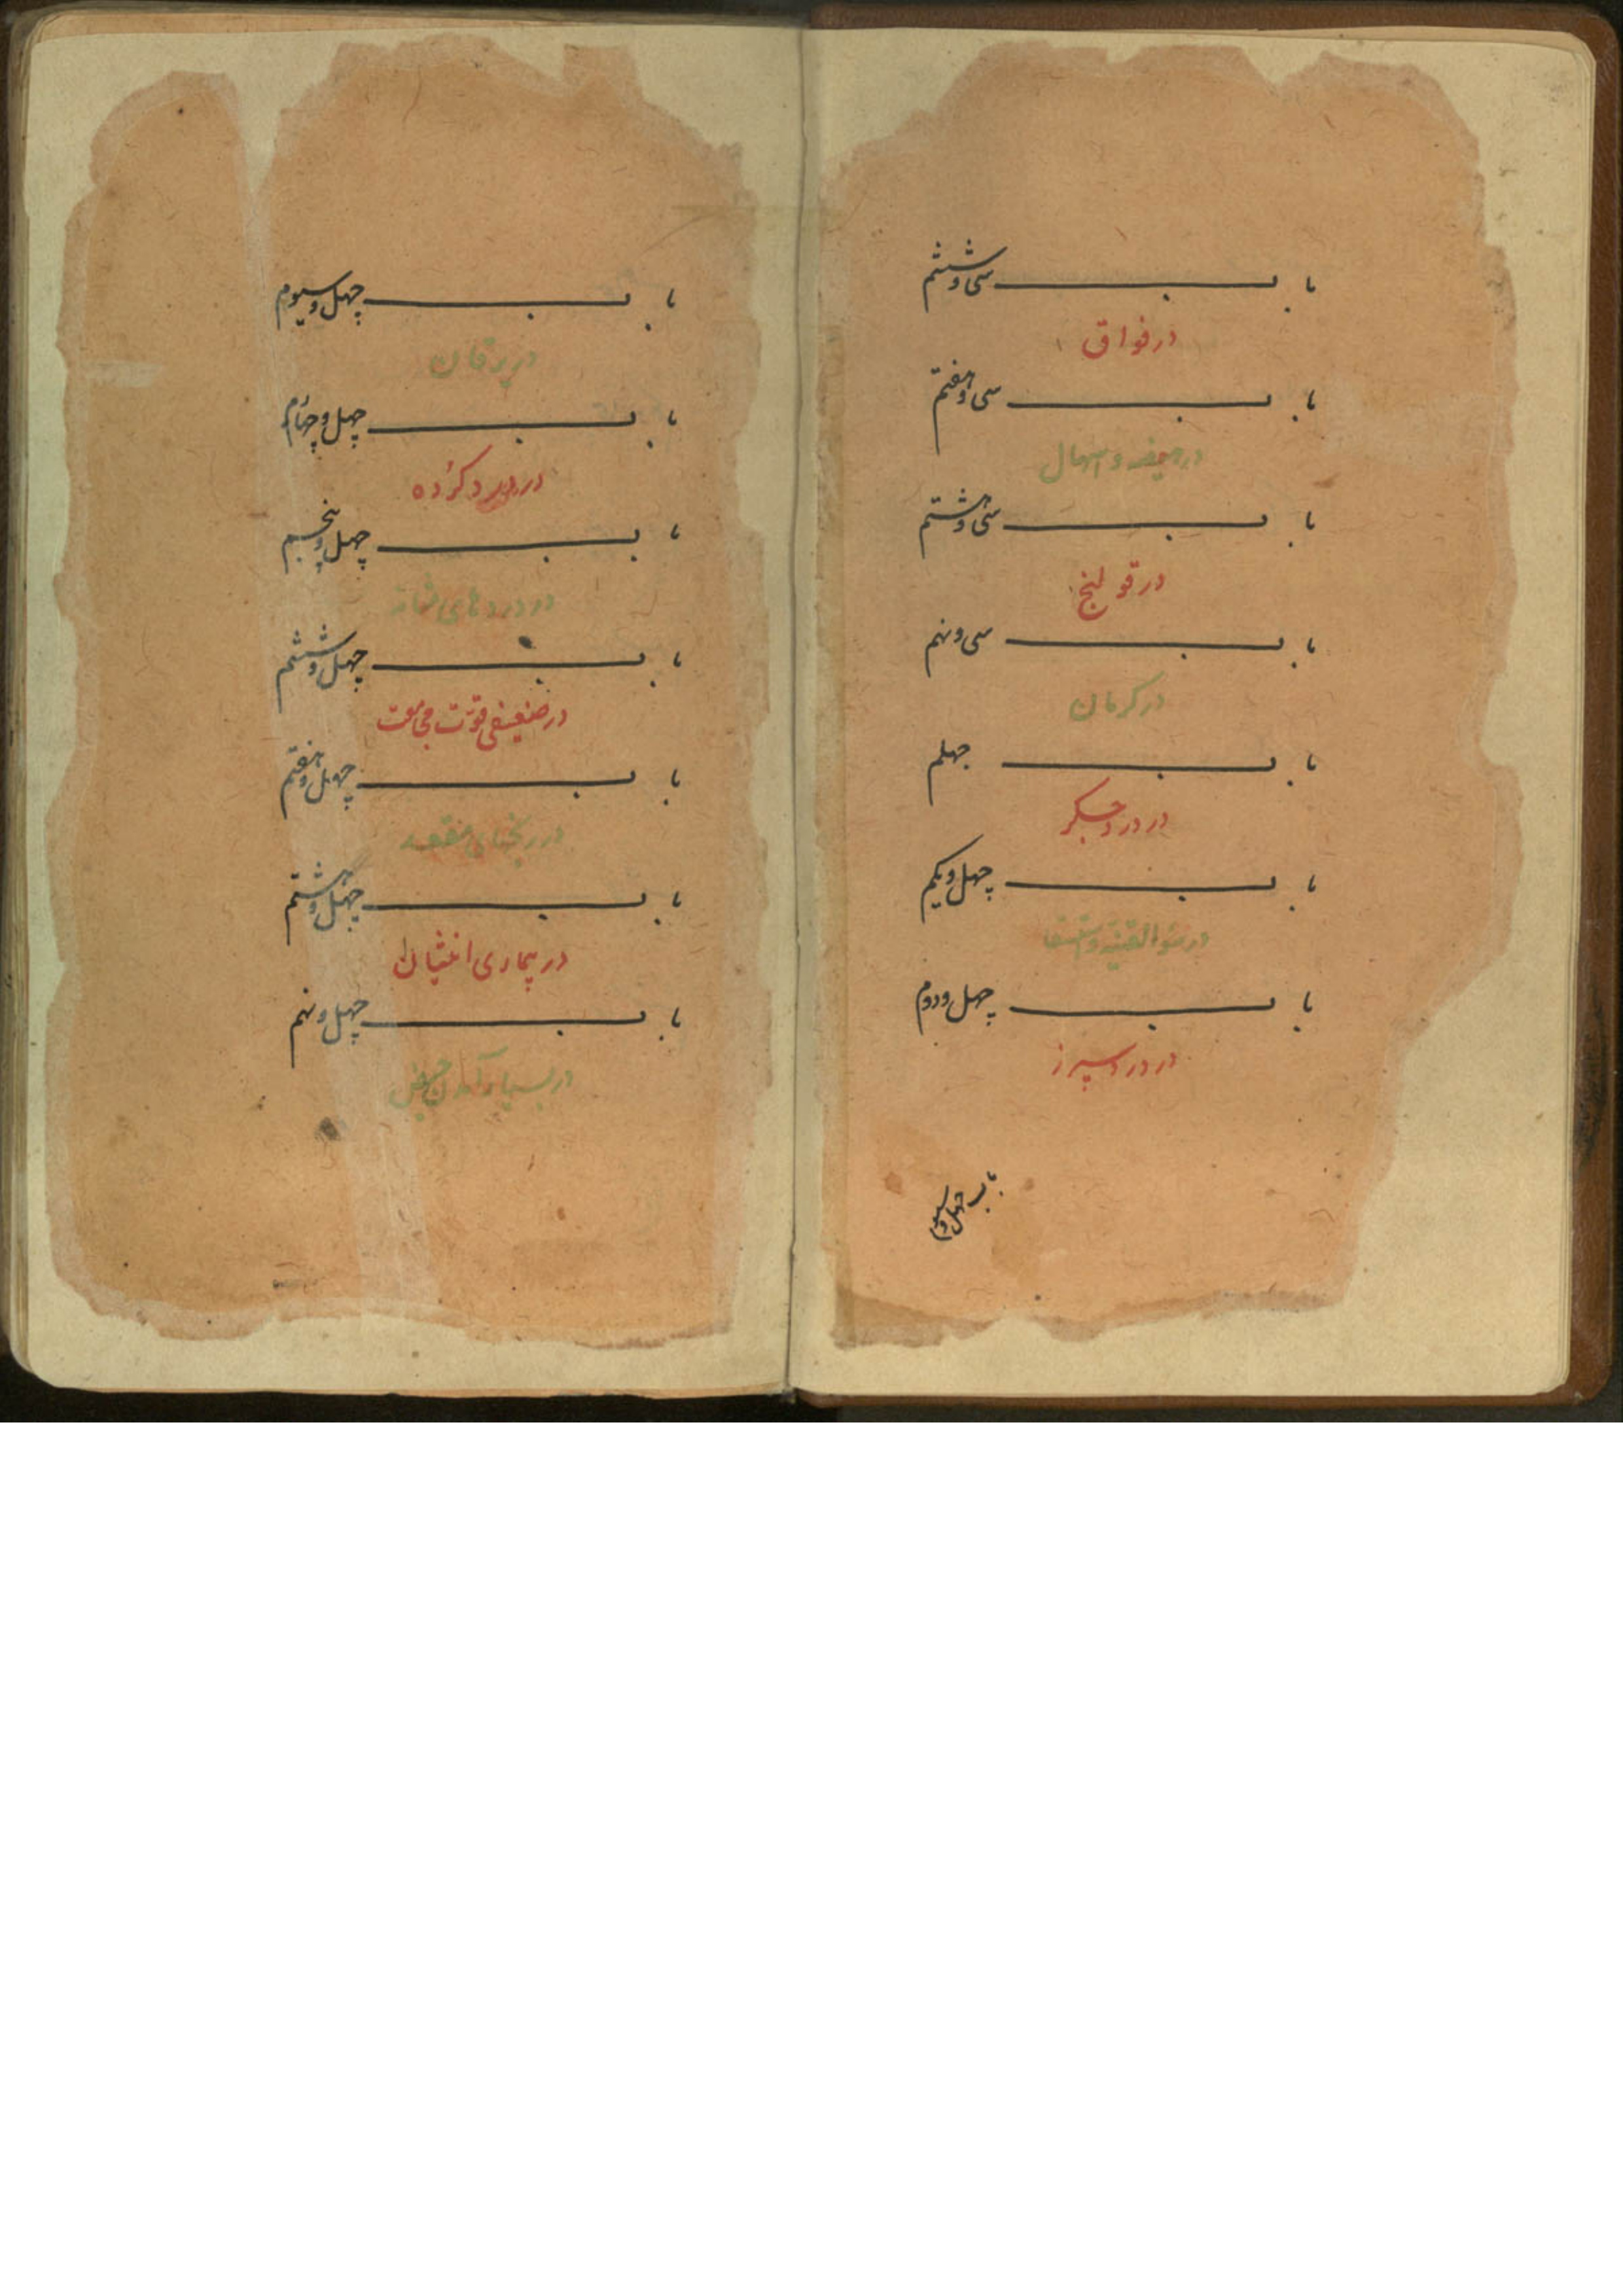 باب سی و ششم
در فواق
باب سی و هفتم
در هیضه و اسهال
باب سی و هشتم
در قولنج
باب سی و نهم
در کرمان
باب چهلم
در درد جگر
باب چهل و یکم
در سوء القنیه و استسقا
باب چهل و دوم
در درد سپرز
باب چهل و سیوم
باب چهل و سیوم
در یرقان
باب چهل و چهارم
در درد کرده
باب چهل و پنجم
در دردهای مثانه
باب چهل و ششم
در ضعیفی قوت مجامعت
باب چهل و هفتم
در رنجهای مقعد
باب چهل و هشتم
در بیماری انثیان
باب چهل و نهم
در بسیار آمدن حیض